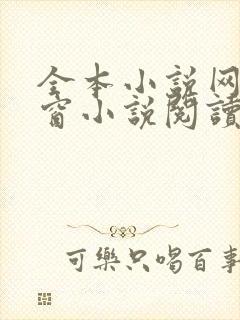 全本小说网
窗小说閱讀
可樂只喝百事